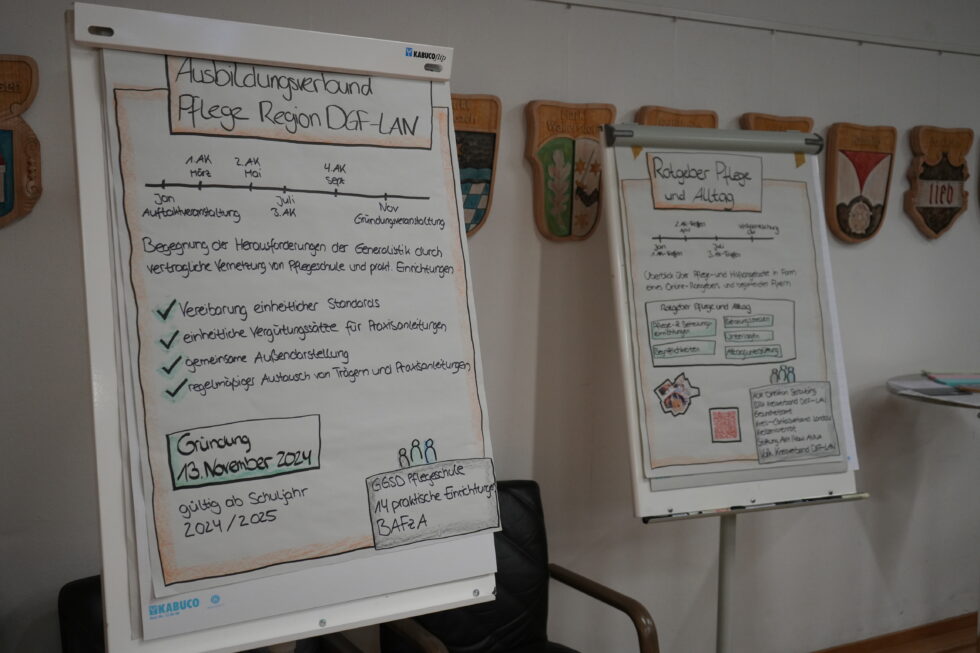 KABUCO flip
Ausbildungsverbund
Pflege Region DGF-LAN
1.AK
März
2.AK
Mai
4.AK
Sept
Jan
Auftaktveranstaltung
Juli
3.AK
Nov
Gründungsveranstaltung
Begegnung der Herausforderungen der Generalistik durch
vertragliche Vernetzung von Pflegeschule und prakt. Einrichtungen
Vereibarung einheitlicher Standards
einheitliche Vergütungssätze für Praxisanleitungen
gemeinsame Außendarstellung
regelmäßiges Austausch von Trägern und Praxisanleitungen
Gründung
13. November 2024
gültig ab Schuljahr
2024/2025
GGSD Pflegeschule
14 praktische Einrichtungen
BAFzA
KABUCO
Ratgeber Pflege
und Alltag
2.AK-Treffen
April
Jan
1.AK-Treffen
Juli
3.AK-Treffen
Überblick über Pflege- und Hilfsangebote in Form
eines Online-Ratgebers und begleitender Flyern
Ratgeber Pflege und Alltag
Pflege- & Betreuungs-
einrichtungen
Beratungsstellen
Unterlagen
Begrifflichkeiten
Alltagsunterstützung
Kreisverband DGF-LAN
Gesundheitsamt
Landau
Stiftung
VdK Kreisverband DGF-LAN